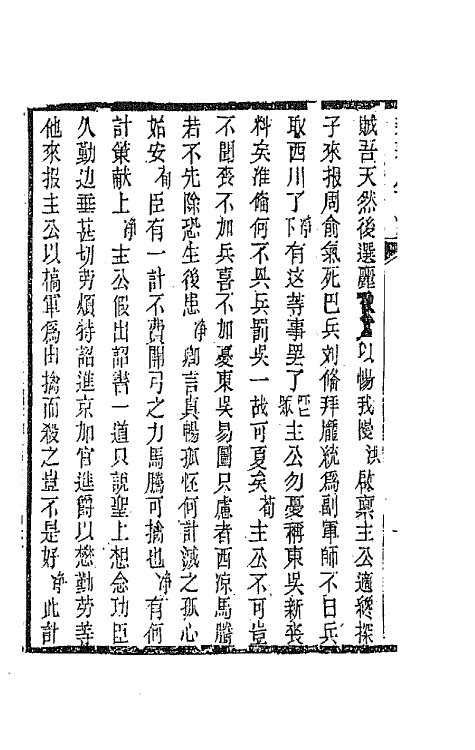 賊吾天然後選麗以暢我懷洪啟稟主公適纔探
子來报周俞氣死巴丘刘俻拜龐統爲副軍師不日兵
取西川了净下有这等事罢了衆臣主公勿憂稱東吳新丧
料矣准俻何不興兵罰吳一哉可夏矣荀主公不可豈
不聞丧不加兵喜不加憂東吳易圖只慮者西凉馬騰
若不先除恐生後患净卿言真暢孤怀何計滅之孤心
始安荀臣有一計不費開弓之力馬騰可擒也净有何
計策献上净主公假出詔書一道只說聖上想念功臣
久勤边垂甚切劳煩特詔進京加官進爵以懋勤劳等
他來报主公以犒軍爲由擒而殺之豈不是好净此計